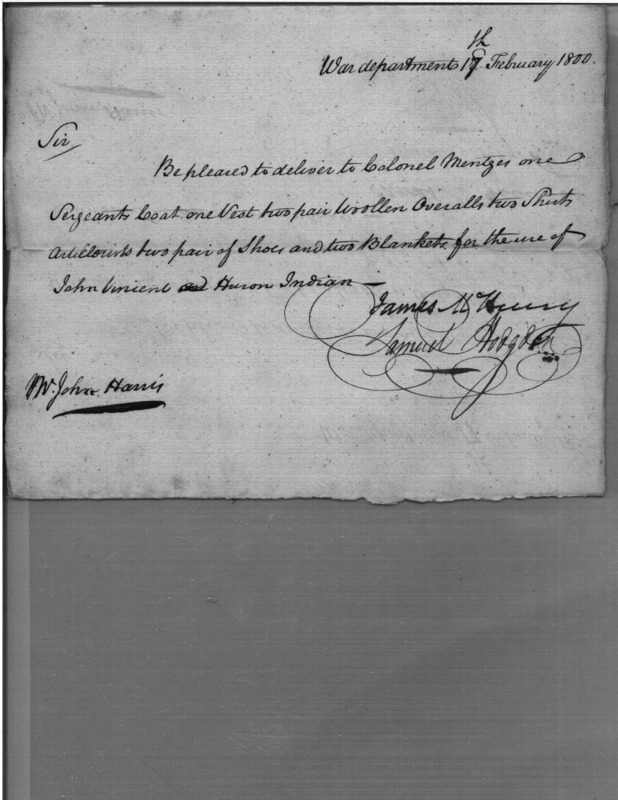 War department 17th February 1800.
Sir
Be pleased to deliver to Colonel Mentges one
Sergeants Coat one Vest two pair Woollen Overalls two Shirts
two pair of Shoes and two Blankets for the use of
John Vincent Huron Indian
James McHenry
Samuel Hodgdon
Mr. John Harris